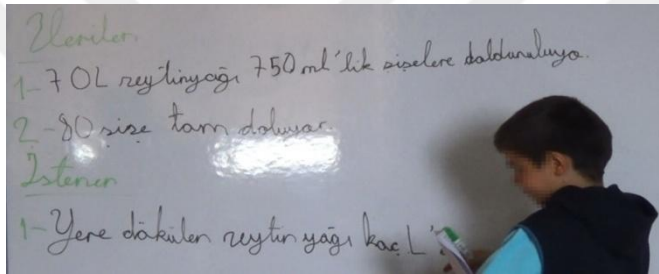 Verilen
1- 70L zeytinyağı 750 ml'lik şişelere dolduruluyo.
2- 80 şişe tam doluyor
İstenen
1- Yere dökülen zeytin yağı kaç L?